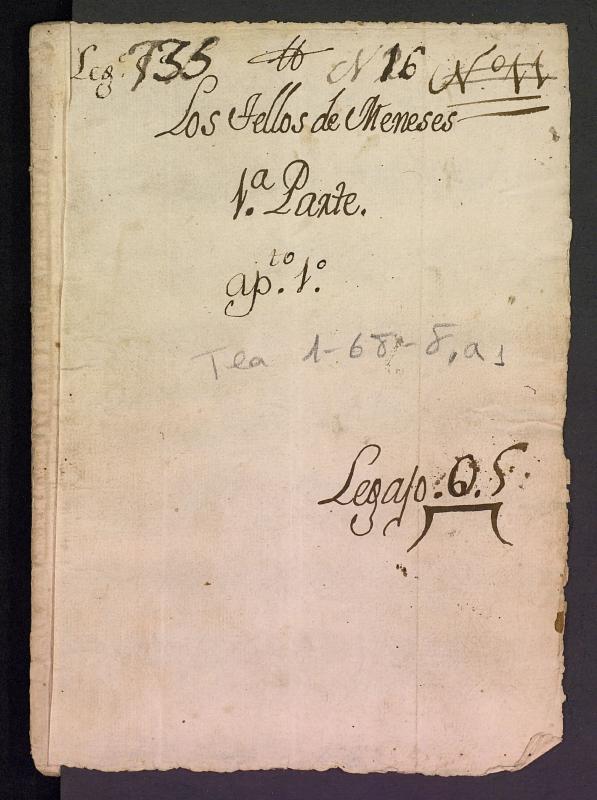 Leg.º 735 tt N 16 N.º 11
Los Tellos de Meneses
1.ª Parte.
ap.to 1.º
Tea 1-68-8, a1
Legajo. 6. S.